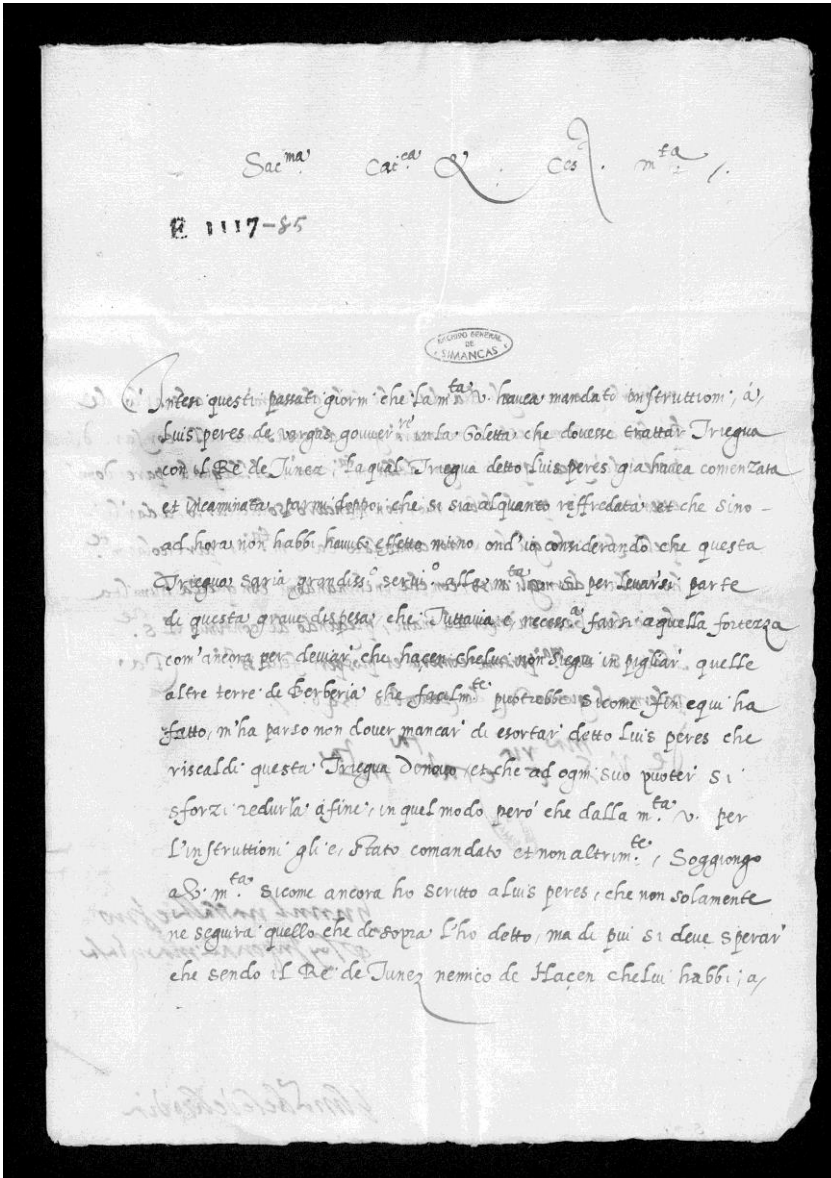 Sac.ma Cat.ca & Ces. m.ta /.
E 1117-85
ARCHIVO GENERAL
DE
SIMANCAS
Intesi questi passati giorni che La m.ta v. havea mandato instruttioni, á
Luis peres de vargas gouver.re in la Goletta che dovesse trattar Triegua
con il Re de Tunez, La qual Triegua detto Luis peres gia havea comenzata
et incaminata, parmi doppoi che si sia alquanto reffredata et che sino -
ad hora non habbi havuto effetto niuno ond'io considerando che questa
Triegua saria grandiss.o servi.o alla m.ta sua si per levarsi parte
di questa grave dispesa che Tuttavia e necess.a farsi a quella fortezza
com'ancora per deviar che hacen chelui non siegui in pigliar quelle
altre terre de Berberia che facilm.te puotrebbe sicome fin equi ha
fatto, m'ha parso non dover mancar di esortar detto Luis peres che
riscaldi questa Triegua Denovo et che ad ogni suo puoter si
sforzi redurla á fine, in quel modo peró che dalla m.ta v. per
L'instruttioni gli e, stato comandato et non altrim.te, Soggiongo
a V. m.ta sicome ancora ho scritto a Luis peres, che non solamente
ne seguira quello che de sopra L'ho detto, ma di piu si deve sperar
che sendo il Re de Tunez nemico de Haçen chelui habbi, a,